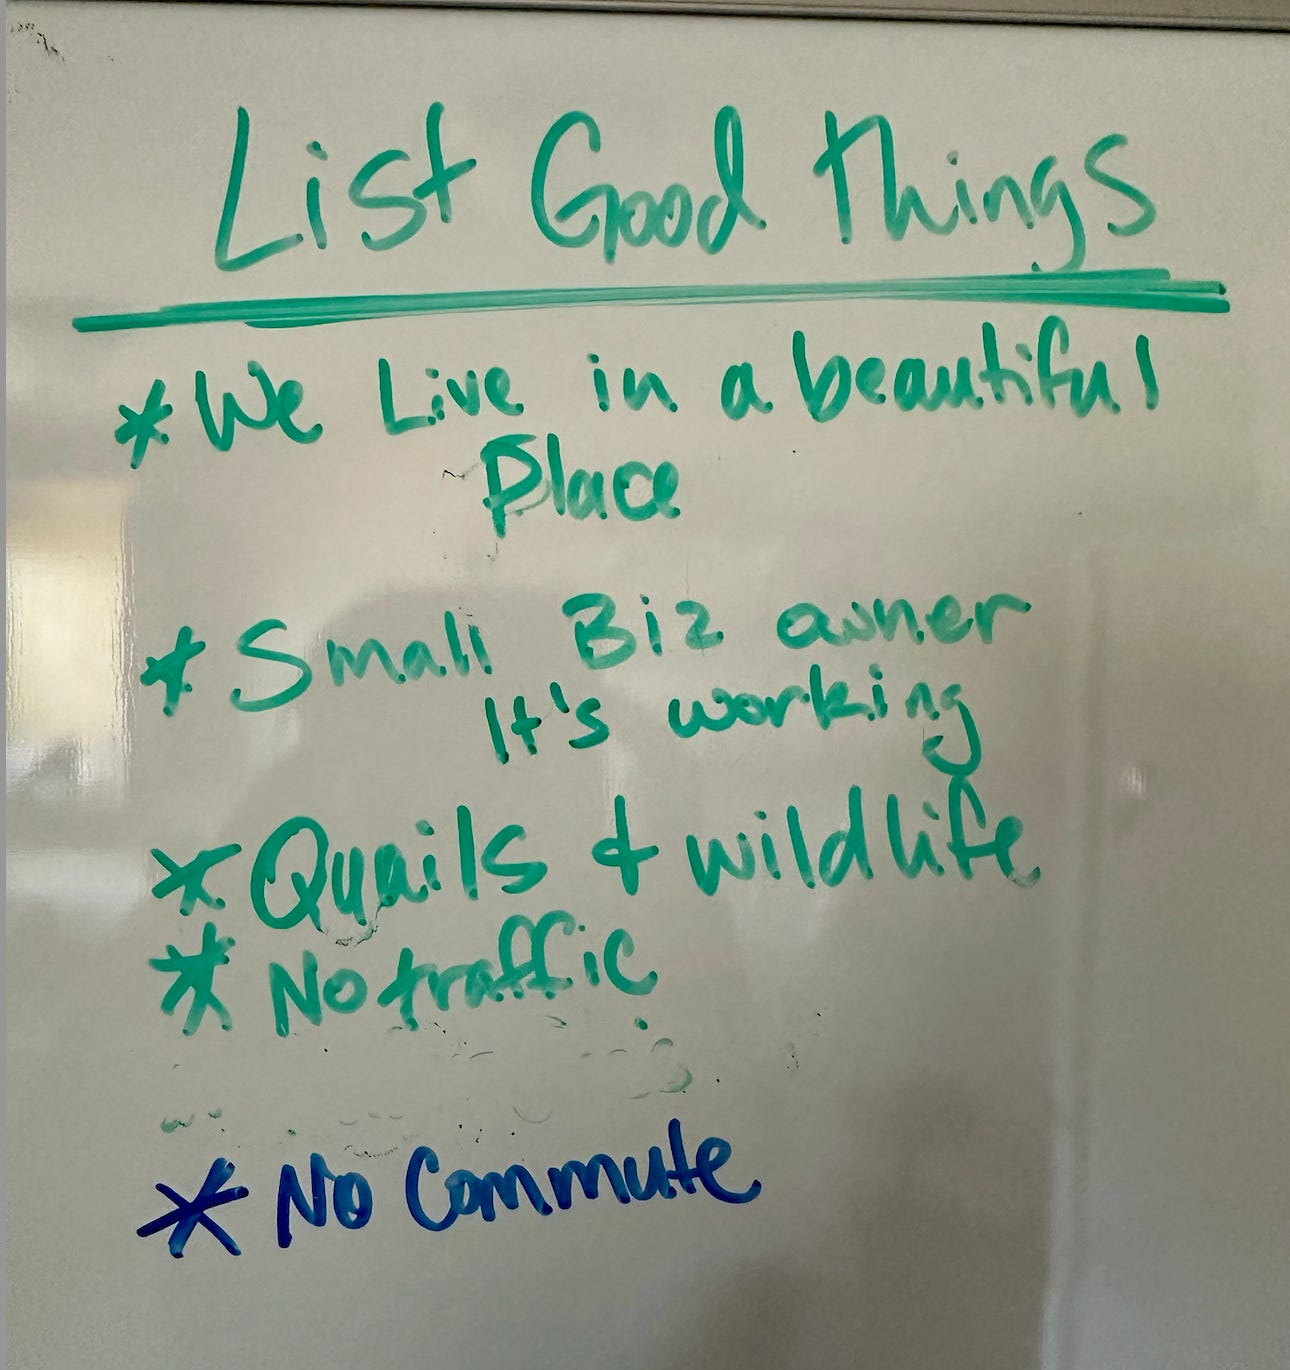 List Good Things
* We Live in a beautiful
Place
* Small Biz owner
It's working
* Quails & wildlife
* No traffic
* No Commute